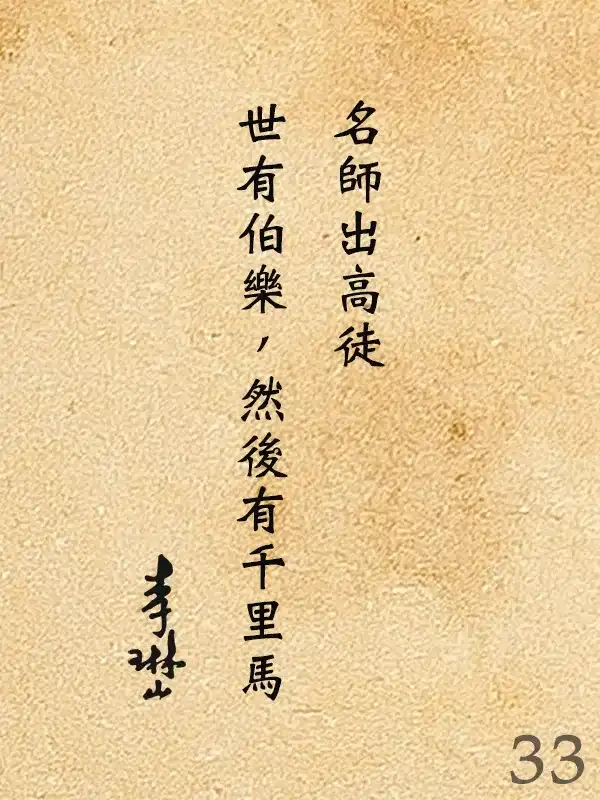 名師出高徒
世有伯樂，然後有千里馬
李琳山
33